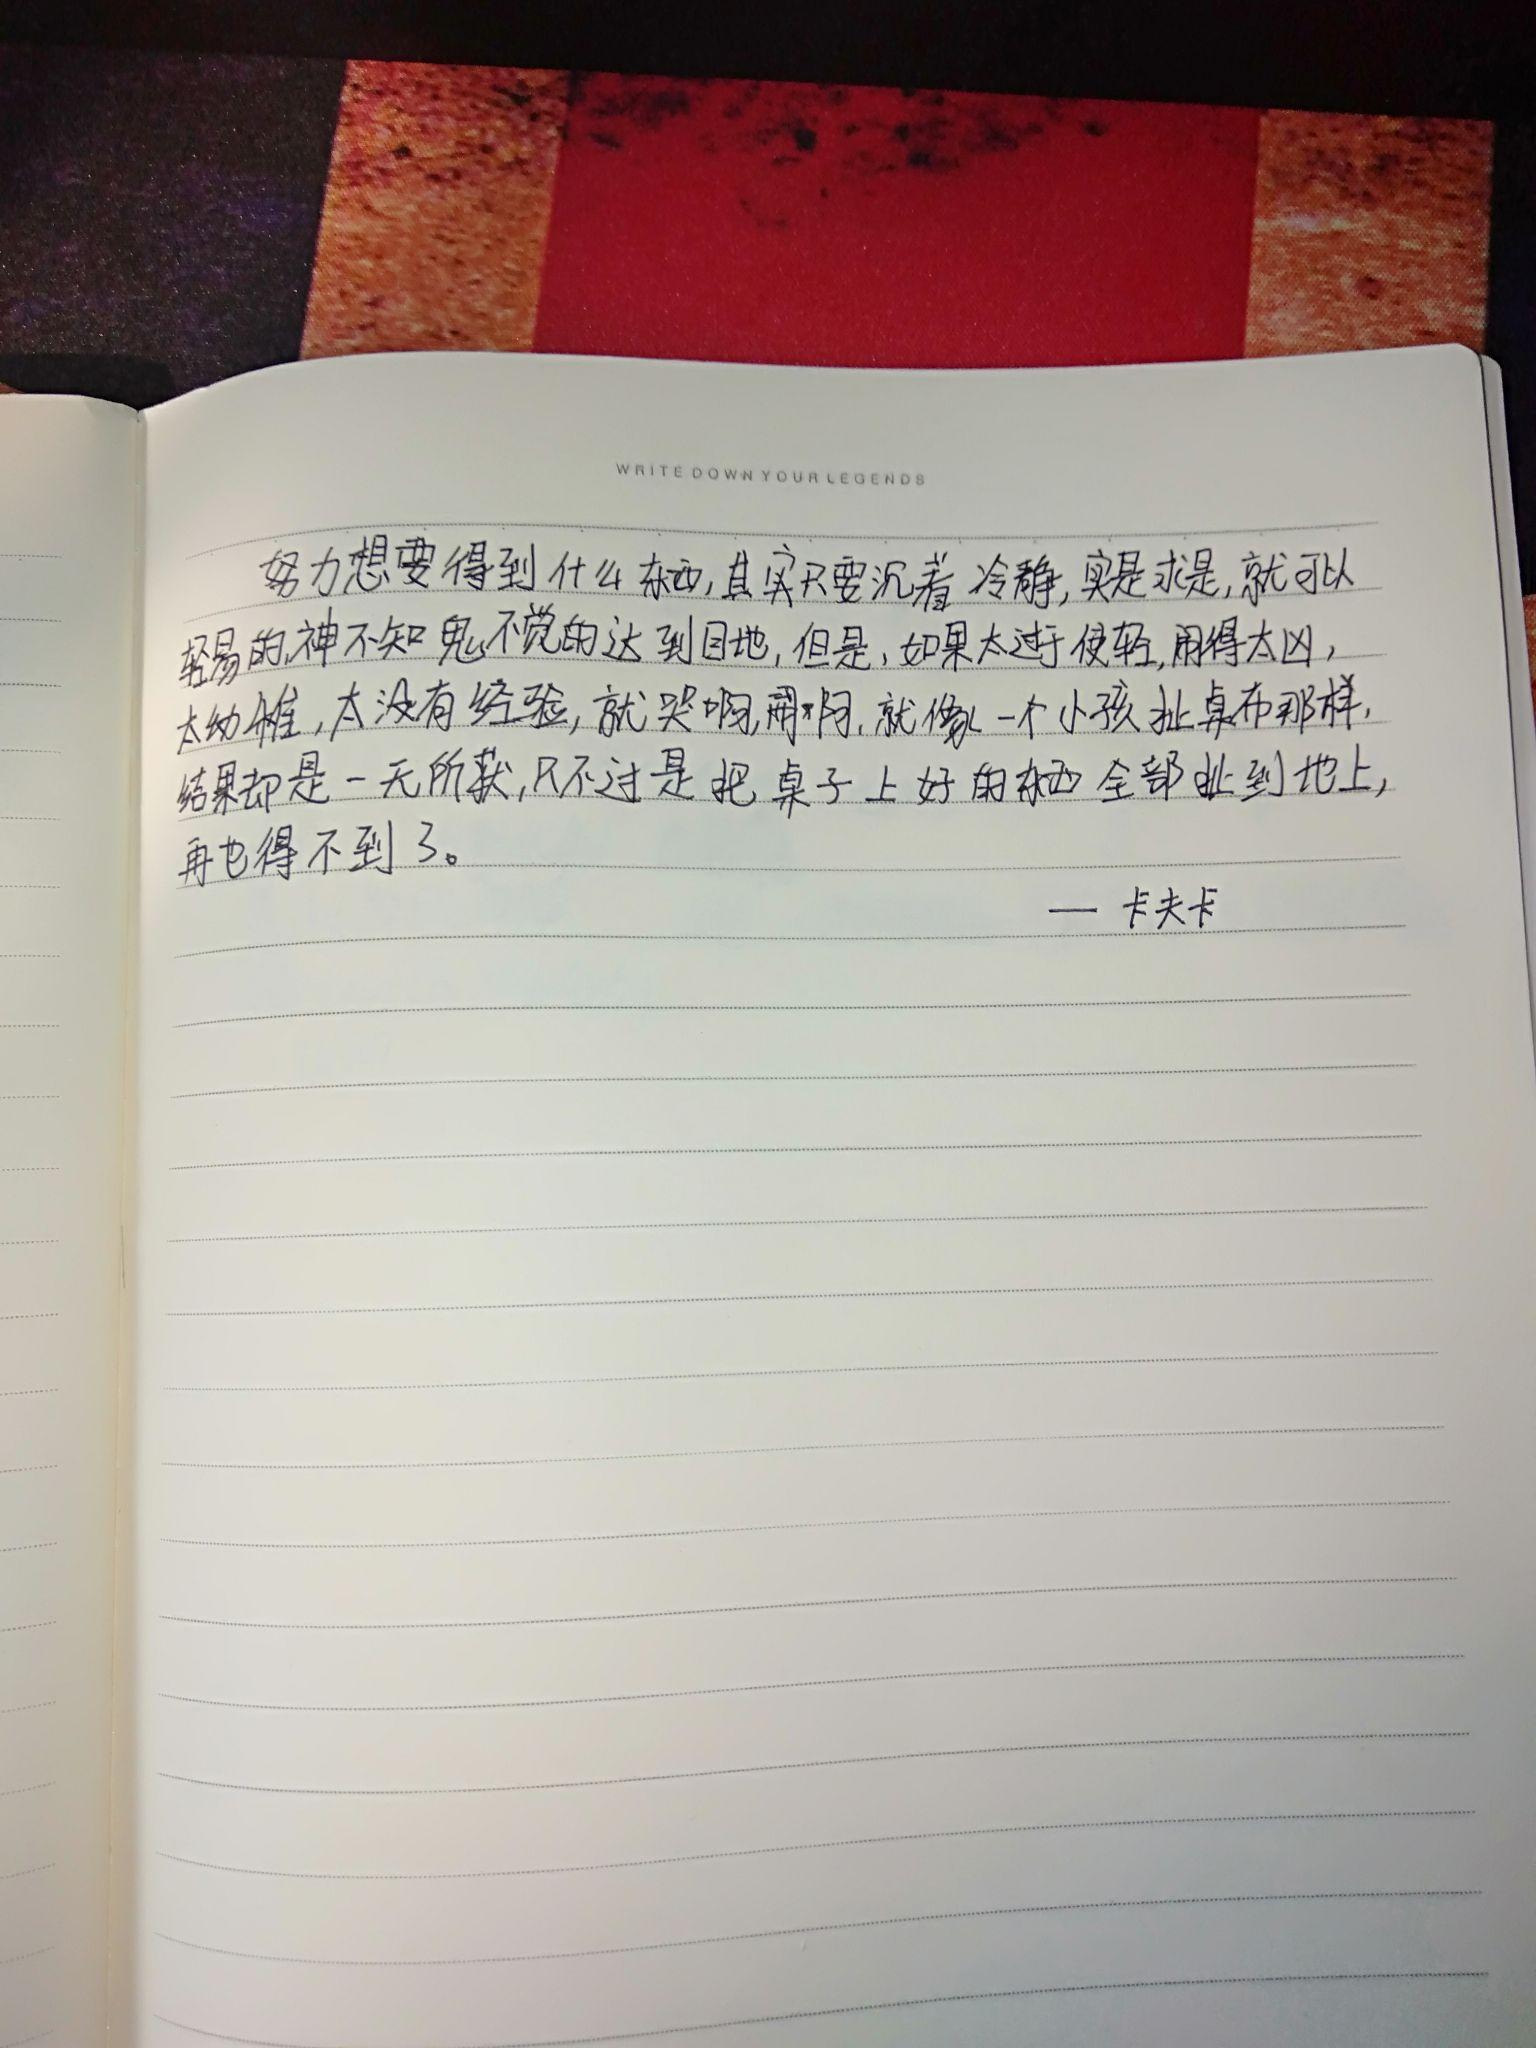 WRITE DOWN YOUR LEGENDS
努力想要得到什么东西,其实只要沉着冷静,实是求是,就可以
轻易的,神不知鬼不觉的达到目地,但是,如果太过于使轻,用得太凶,
太幼稚,太没有经验,就哭啊,闹啊,就像一个小孩扯桌布那样,
结果却是一无所获,只不过是把桌子上好的东西全部扯到地上,
再也得不到了。
— 卡夫卡